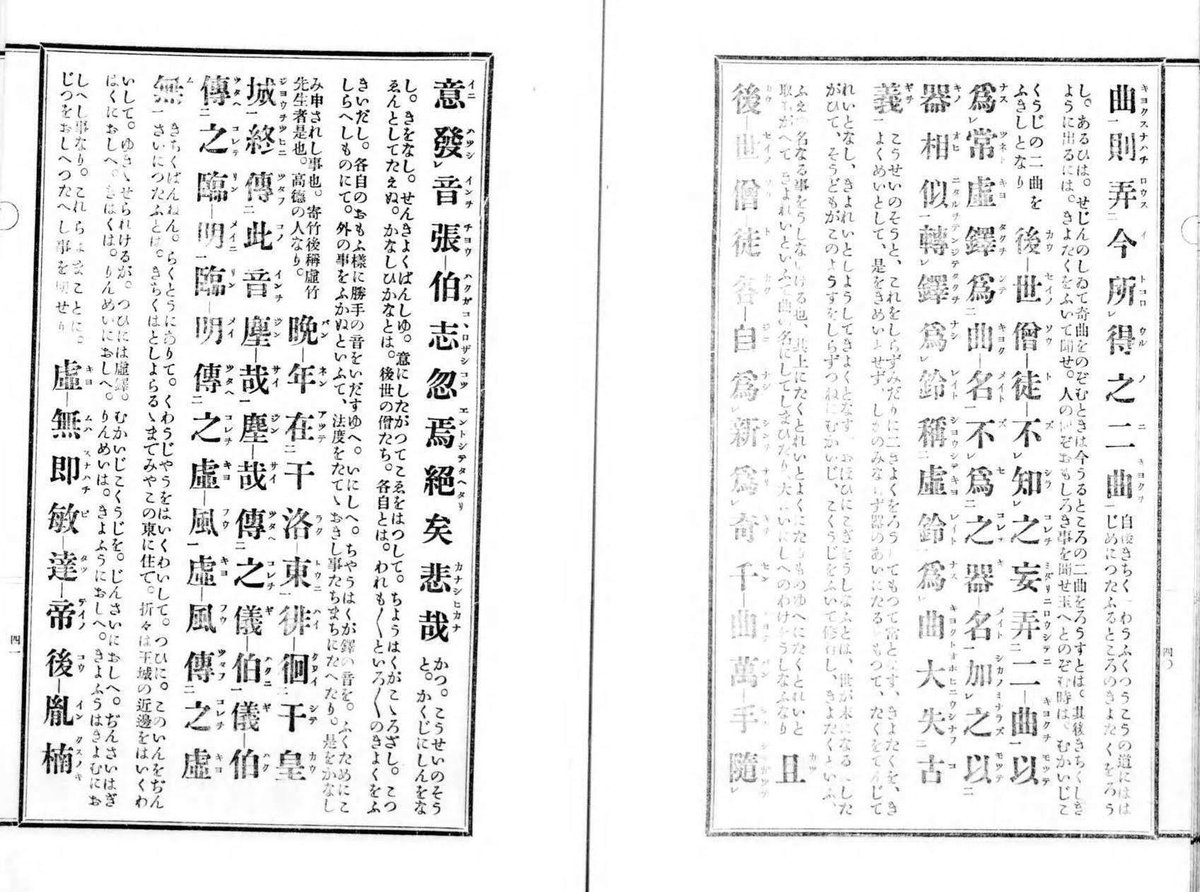 曲則弄今所得之二曲
自後きちく わうふくつうこうの道にはは
じめにつたふるところのきよたくをろう
し。あるひは。せじんのしゐて奇曲をのぞむときは今うるところの二曲をろうすとは。其後きちくしき
ように出るには。きよたくをふいて聞せ。人のいぞおもしろき事を聞せ玉へとのぞむ時は。むかいじこ
くうじの二曲を
ふきしとなり
後世僧徒不知之妄弄二曲以
爲常虛鐸爲曲名不爲之器名加之以
器相似轉鐸爲鈴稱虛鈴爲曲大失古
義
こうせいのそうと、これをしらずみだりに二きよくをろうしてもつて常とす、きよたくを、き
よくめいとして、是をきめいとせず。しかのみならず器のあいにたるをもつて、たくをてんじて
れいとなし、きよれいとしようしてきよくとなす、おほひにこぎをうしなふとは、世が末になるにした
がひて、そうどもがこのようすをしらずつねにむかいじ、こくうじをふいて修行し、きよたくといふ、
ふえの名なる事をうしないける也、其上にたくとれいとよくにたるものゆへにたくとれいと
取ちがへてきよれいといふ曲名にしてしまひたり、大いにいにしへのわけをうしなふたなり
且
後世僧徒各自爲新爲奇千曲萬手隨
四〇
意發音張伯志忽焉絕矣悲哉
かつ。こうせいのそう
と。かくじにしんをな
し。きをなし。せんきよくばんしゆ。意にしたがつてこゑをはつして。ちようはくがこゝろざし。こつ
ゑんとしてたえぬ。かなしひかなとは。後世の僧たち。各自とは。われも〱といろ〱のきよくをふ
きいだし。各自のおもふ様に勝手の音をいだすゆへ。いにしへ。ちやうはくが鐸の音を。ふくためにこ
しらへしものにて。外の事をふかぬといふて、法度をたてゝおきし事たちまちにたへたり。是をかなし
み申されし事也。寄竹後稱虛竹
先生者是也。高德の人なり。
晩年在干洛東徘徊干皇
城終傳此音塵哉塵哉傳之儀伯儀伯
傳之臨明臨明傳之虛風虛風傳之虛
無
きちくばんねん。らくとうにありて。くわうじやうをはいくわいして。つひに。このいんをぢん
さいにつたふとは。きちくはとしよらるゝまてみやこの東に住て。折々は王城の近邊をはいくわ
いして。ゆきゝせられけるが。つひには虛鐸。むかいじこくうじを。じんさいにおしへ。ぢんさいはぎ
はくにおしへ。ぎはくは。りんめいにおしへ。りんめいは。きよふうにおしへ。きよふうはきよむにお
しへし事なり。これらまことに。
じつをおしへつたへし事を顯せり
虛無卽敏達帝後胤楠
四一